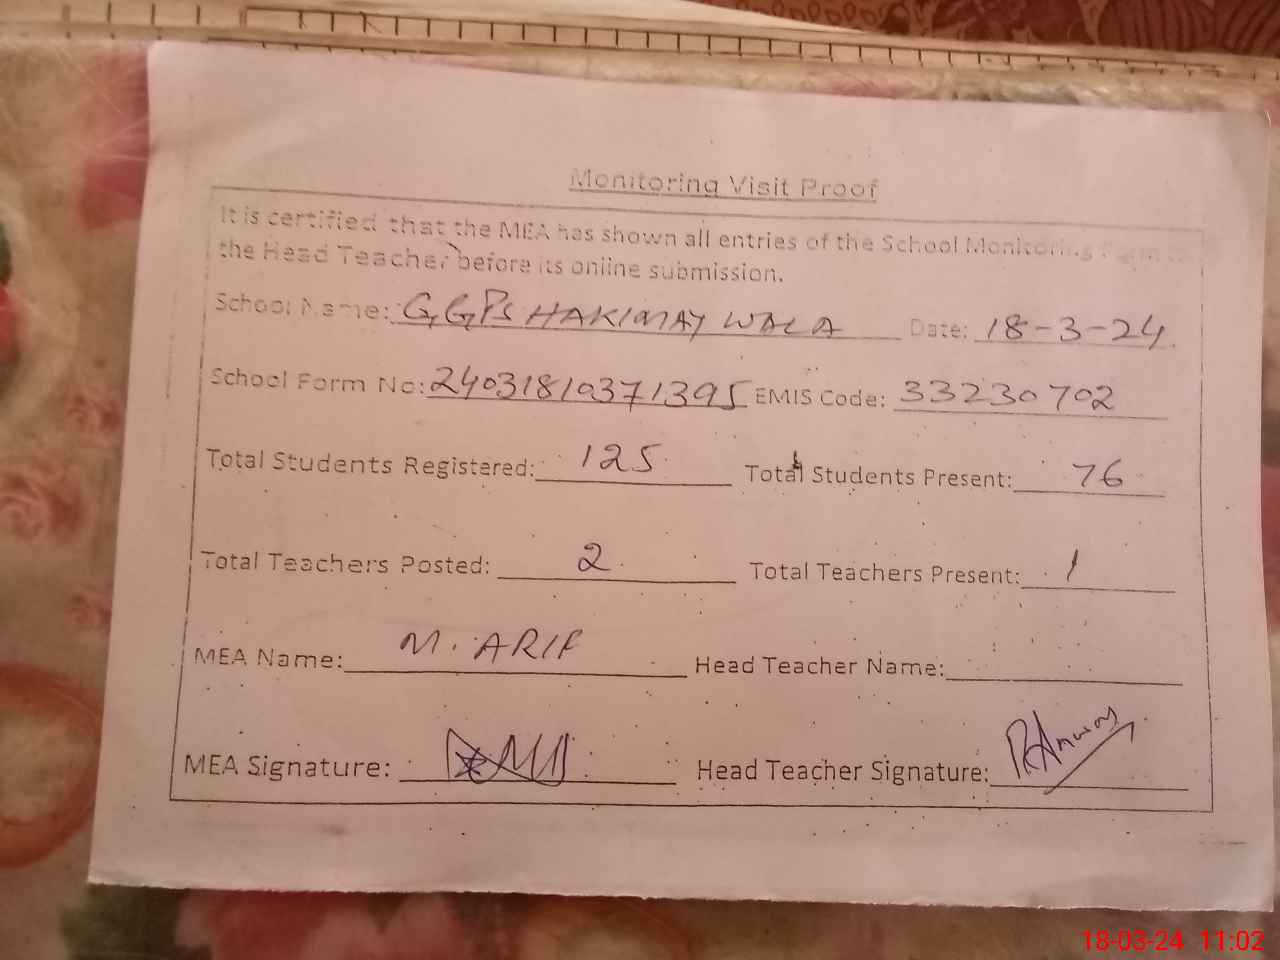 Monitoring Visit Proof
It is certified that the MEA has shown all entries of the School Monitoring
the Head Teacher before its online submission.
School Name: GGPS HAKIMAY WALA Date: 18-3-24.
School Form No: 24031810371395 EMIS Code: 33230702
Total Students Registered: 125 Total Students Present: 76
Total Teachers Posted: 2 Total Teachers Present: 1
MEA Name: M. ARIF Head Teacher Name:
MEA Signature: Head Teacher Signature: RAnwar
18-03-24 11:02